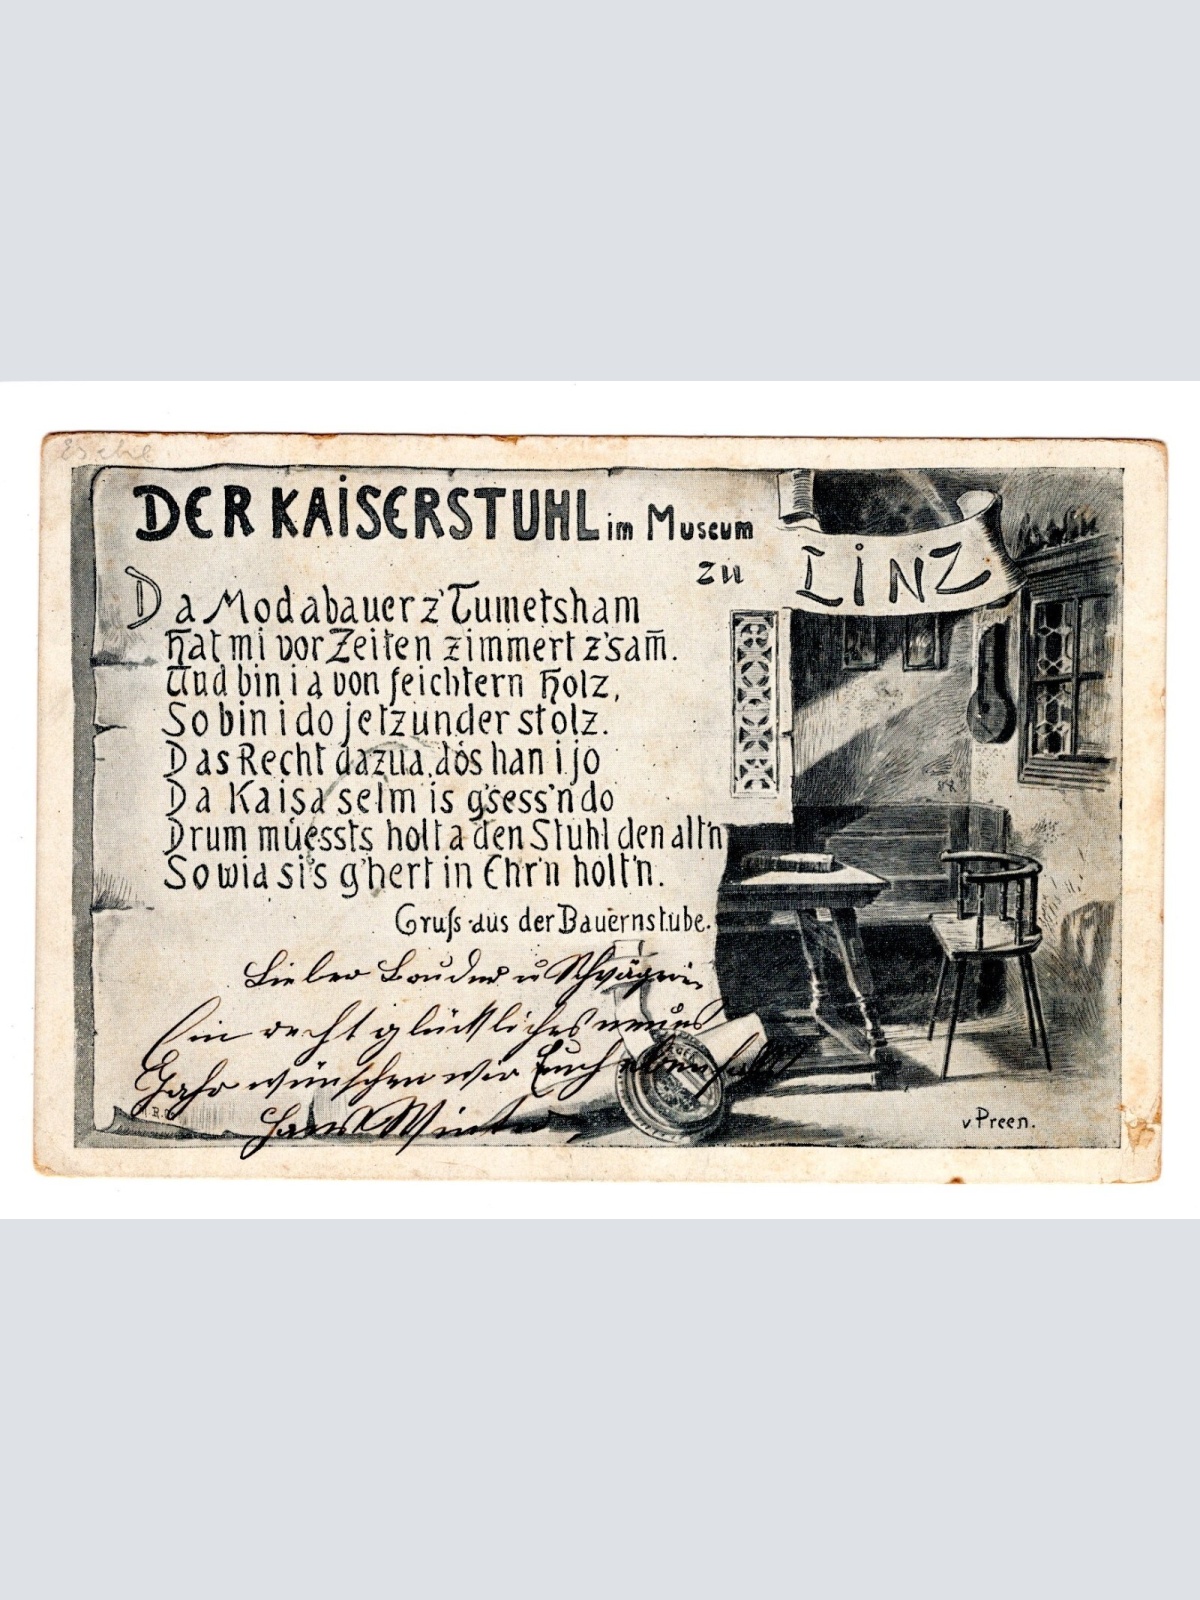 DER KAISERSTUHL im Museum
zu LINZ
Da Modabauer z'Tumetsham
Hat mi vor Zeiten zimmert z'sam̄.
Und bin i a von feichtern Holz,
So bin i do jetzunder stolz.
Das Recht dazua, dös han i jo
Da Kaisa selm is g'sess'n do
Drum müessts holt a den Stuhl den alt'n
So wia si's g'hert in Ehr'n holt'n.
Gruss aus der Bauernstube.
Lieber Bruder u Schwägerin
Ein recht glückliches neues
Jahr wünschen wir Euch ebenfalls
Hans Winter
v Preen.